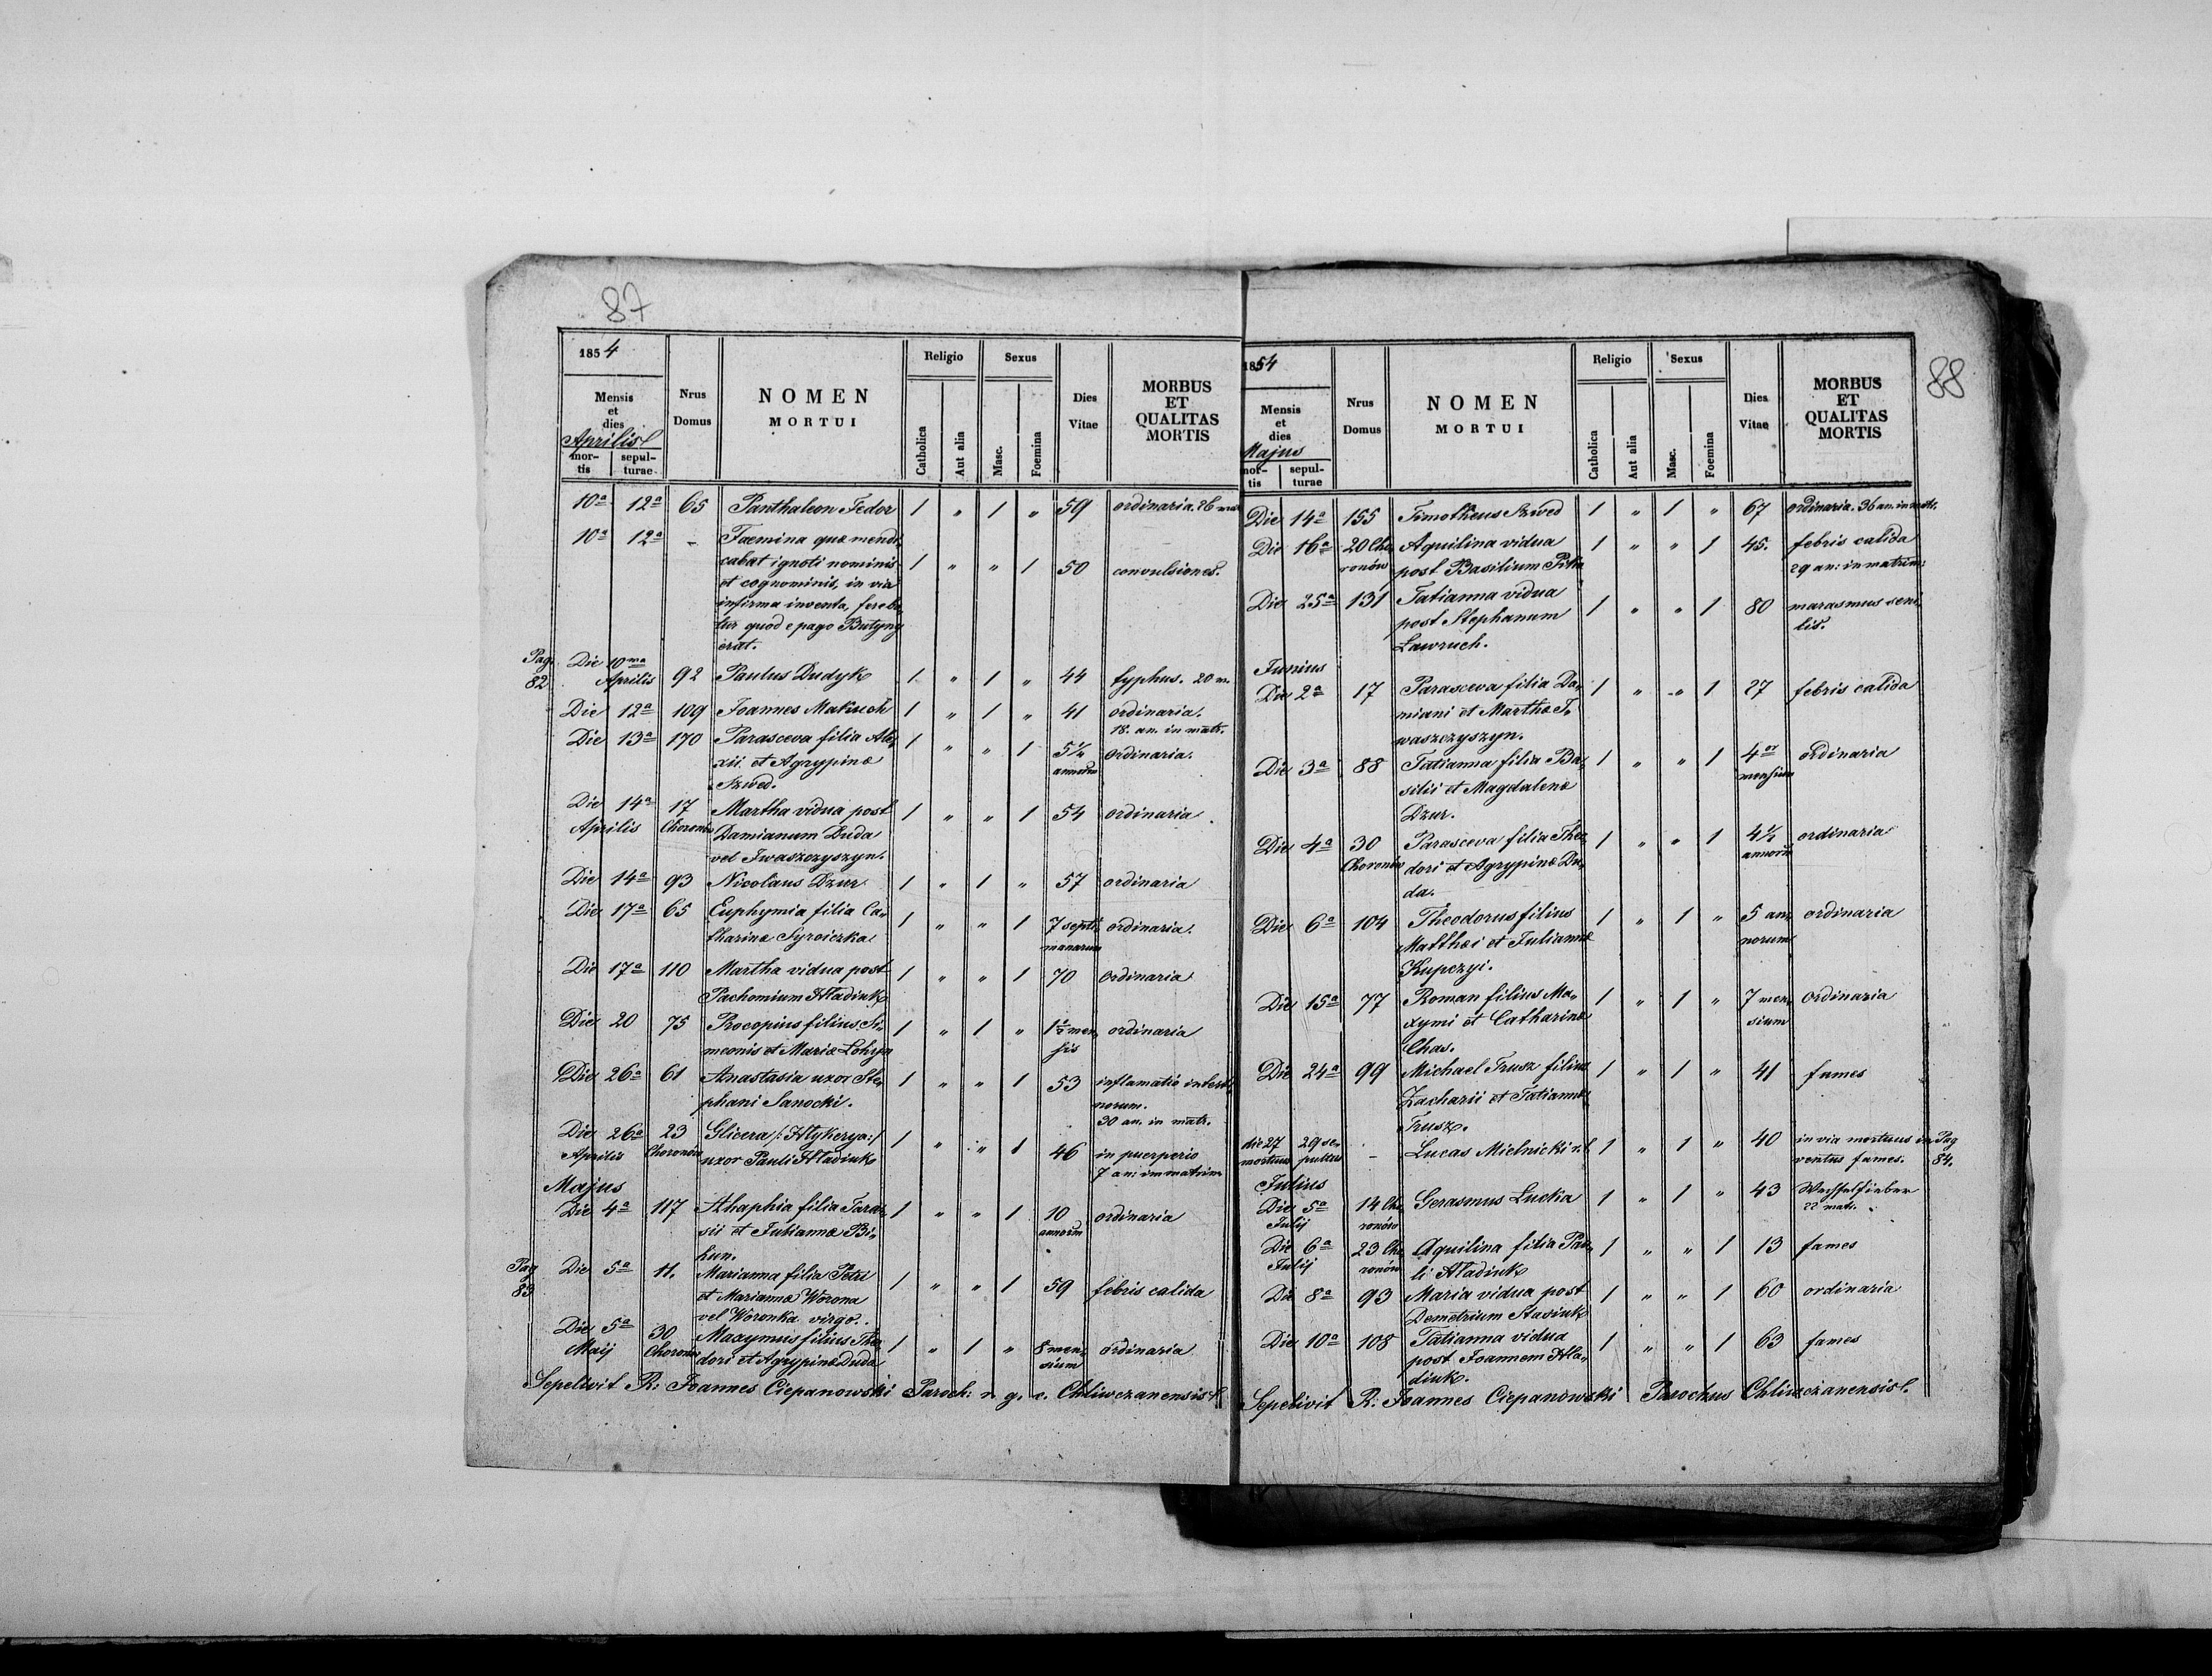 87
1854
Mensis et dies
Aprilis
mortis
sepulturae
Nrus Domus
NOMEN MORTUI
Religio
Catholica
Aut alia
Sexus
Masc.
Foemina
Dies Vitae
MORBUS ET QUALITAS MORTIS
10a 12a 65 Panthaleon Fedor 1 " 1 " 59 ordinaria. 26
10a 12a - Faemina quæ mendi-
cabat ignoti nominis 1 " " 1 50 convulsiones.
et cognominis, in via
infirma inventa, fereba-
tur quod e pago Butyny
erat.
Pag. 82
Die 10ma Aprilis 92 Paulus Dudyk 1 " 1 " 44 typhus. 20 m.
Die 12a 109 Joannes Makuch 1 " 1 " 41 ordinaria.
18. an. in matr.
Die 13a 170 Parasceva filia Ale- 1 " " 1 5½ annorum ordinaria.
xii et Agrypinæ
Szwed.
Die 14a Aprilis 17 Choronów Martha vidua post 1 " " 1 54 ordinaria
Damianum Duda
vel Iwaszczyszyn.
Die 14a 93 Nicolaus Dzur 1 " 1 " 57 ordinaria
Die 17a 65 Euphymia filia Ca- 1 " " 1 7 septi- ordinaria.
tharinæ Syroiczka manarum
Die 17a 110 Martha vidua post 1 " " 1 70 ordinaria
Pachomium Hladiuk
Die 20 75 Procopius filius Si- 1 " 1 " 1 men- ordinaria
meonis et Mariæ Lohyn sis
Die 26a 61 Anastasia uxor Ste- 1 " " 1 53 inflamatio intesti-
phani Sanocki. norum.
30 an. in matr.
Die 26a Aprilis 23 Choronów Glicera /:Hlykerya:/ 1 " " 1 46 in puerperio
uxor Pauli Hladiuk 7 an: in matrim
Majus
Die 4a 117 Ahaphia filia Tara- 1 " " 1 10 annorum ordinaria
sii et Juliannæ Bi-
hun.
Pag 83
Die 5a 11. Marianna filia Petri 1 " " 1 59 febris calida
et Mariannæ Worona
vel Woronka virgo.
Die 5a Maij 30 Choronów Maxymus filius Theo- 1 " 1 " 8 men- ordinaria
dori et Agrypinæ Duda sium
Sepelivit R: Joannes Ciepanowski Paroch: r. g. c. Chliwczanensis
88
1854
Mensis et dies
Majus
mortis
sepulturae
Nrus Domus
NOMEN MORTUI
Religio
Catholica
Aut alia
Sexus
Masc.
Foemina
Dies Vitae
MORBUS ET QUALITAS MORTIS
Die 14a 155 Timotheus Szwed 1 " 1 " 67 ordinaria. 36 an. in matr.
Die 16a 20 Cho- Aquilina vidua 1 " " 1 45. febris calida
ronów post Basilium 29 an: in matrim:
Die 25a 131 Tatianna vidua 1 " " 1 80 marasmus seni-
post Stephanum lis.
Lawruch.
Junius
Die 2a 17 Parasceva filia Da- 1 " " 1 27 febris calida
miani et Marthæ I-
waszczyszyn.
Die 3a 88 Tatianna filia Ba- 1 " " 1 4or mensium ordinaria
silii et Magdalenæ
Dzur.
Die 4a 30 Parasceva filia Theo- 1 " " 1 4½ annorum ordinaria
Choronów dori et Agrypinæ Du-
da.
Die 6a 104 Theodorus filius 1 " 1 " 5 an- ordinaria
Matthæi et Juliannæ norum
Kupczyi.
Die 15a 77 Roman filius Ma- 1 " 1 " 7 men- ordinaria
xymi et Catharinæ sium
Chas.
Die 24a 99 Michael Trusz filius 1 " 1 " 41 fames
Zacharii et Tatiannæ
Trusz.
die 27 29 se- - Lucas Mielnicki r.l. 1 " 1 " 40 in via mortuus in- Pag
mortuus pultus ventus fames. 84.
Julius
Die 5a Julij 14 Cho- Gerasmus Luckia 1 " 1 " 43 Wechselfieber
ronów 22 matr.
Die 6a Julij 23 Cho- Aquilina filia Pau- 1 " " 1 13 fames
ronów li Hladiuk
Die 8a 93 Maria vidua post 1 " " 1 60 ordinaria
Demetrium Stasiuk
Die 10a 108 Tatianna vidua 1 " " 1 63 fames
post Joannem Hla-
diuk.
Sepelivit R: Joannes Ciepanowski Parochus Chliwczanensis.